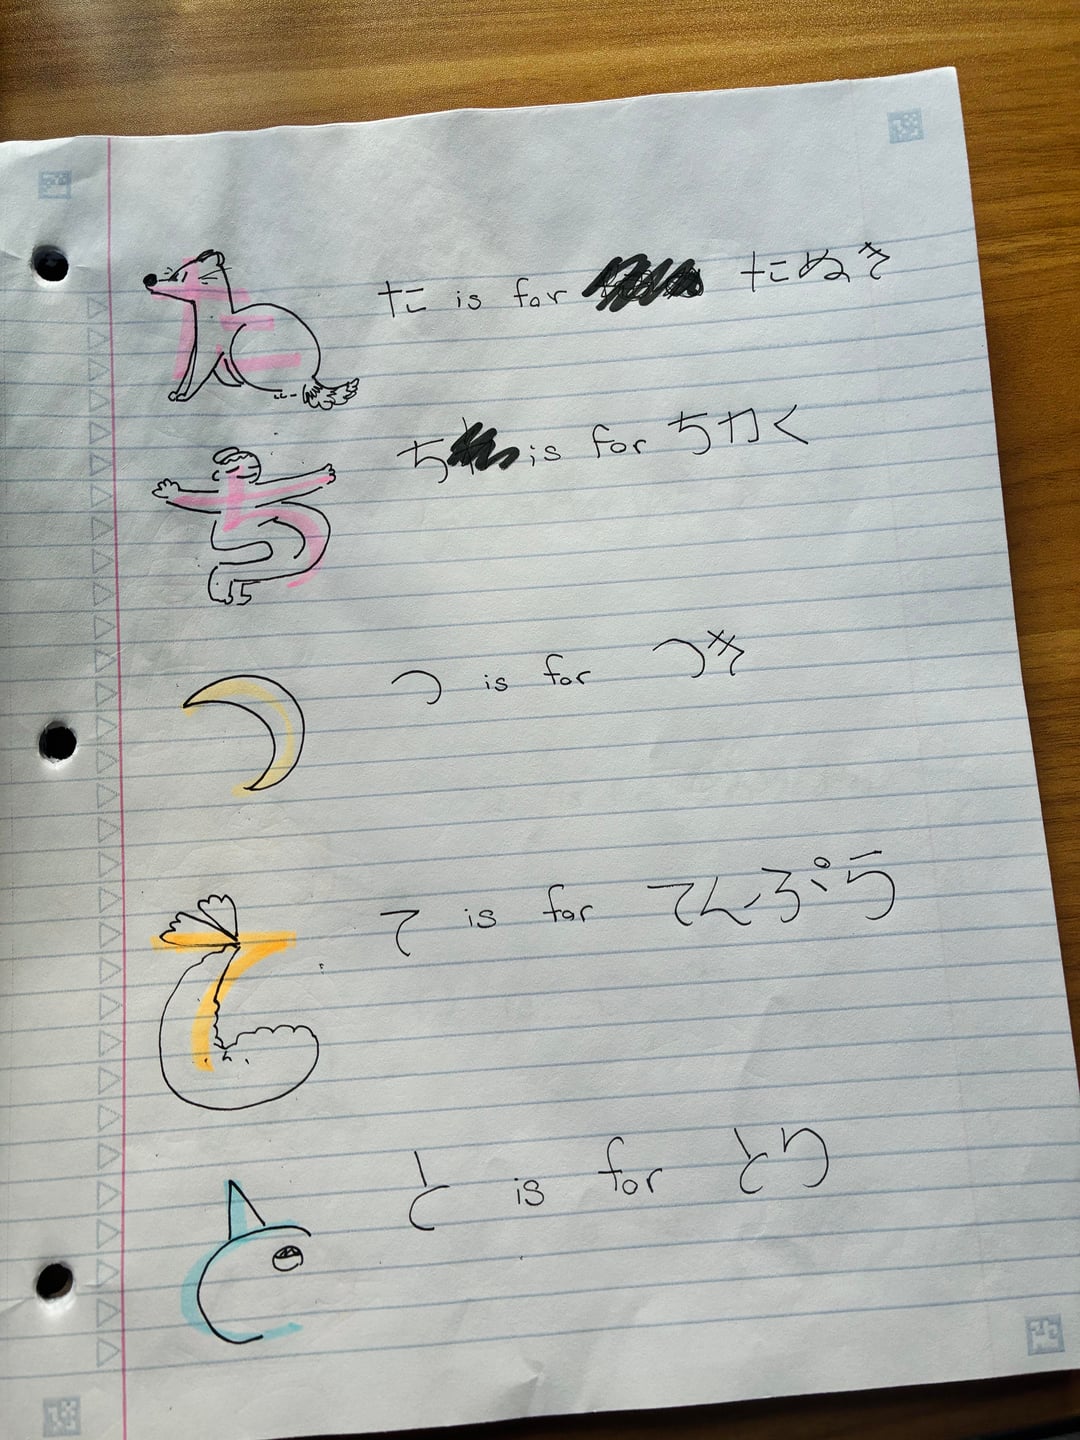 た is for たぬき
ち is for ちかく
つ is for つき
て is for てんぷら
と is for とり